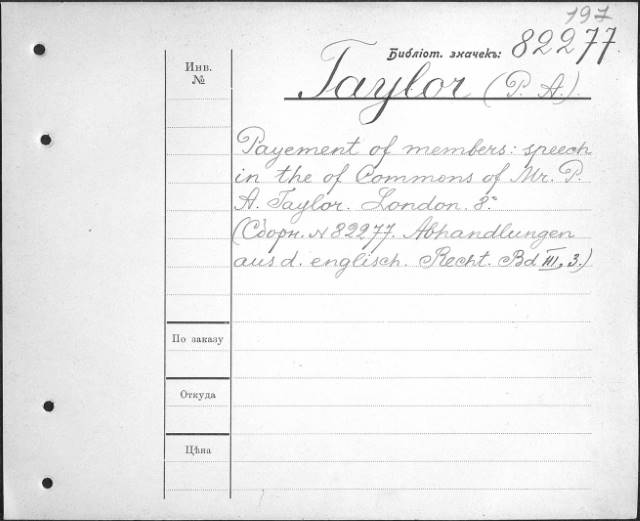 197
Библіот. значекъ: 82277.
Инв.
№
Taylor (P. A.).
Payement of members: speech
in the of Commons of Mr. P.
A. Taylor. London. 8°
(Сборн. № 82277. Abhandlungen
aus d. englisch. Recht. Bd III, 3.)
По заказу
Откуда
Цѣна